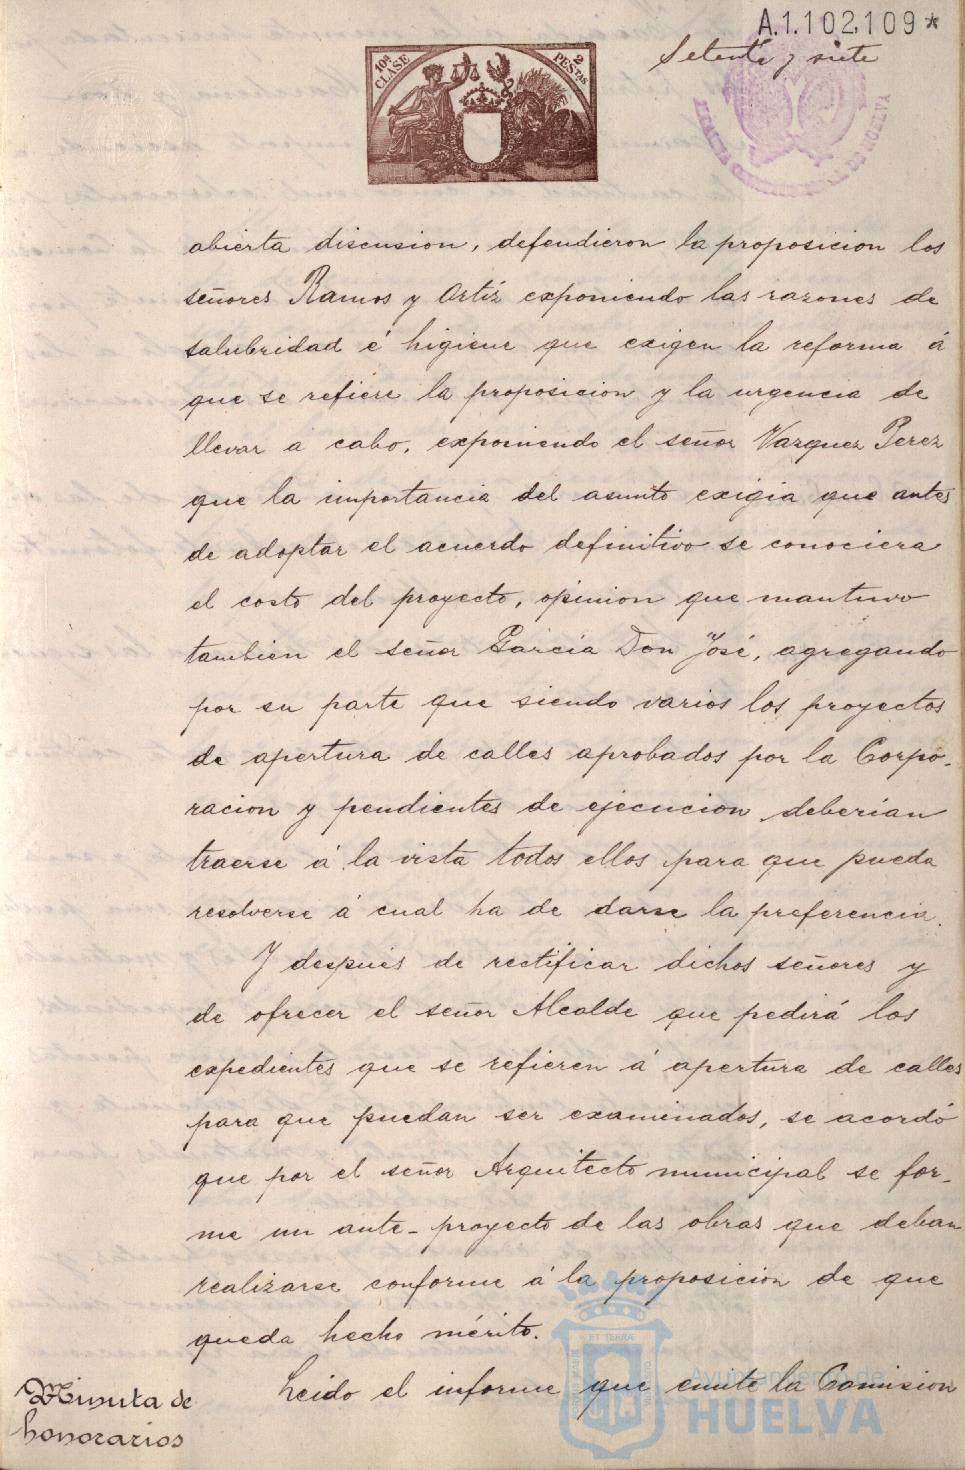 A.1.102,109*
Setenta y siete
10ª CLASE
2 PESTAS
DE HUELVA
abierta discusion, defendieron la proposicion los
señores Ramos y Ortíz exponiendo las razones de
salubridad é higiene que exigen la reforma á
que se refiere la proposicion y la urgencia de
llevar a cabo, exponiendo el señor Vazquez Perez
que la importancia del asunto exigia que antes
de adoptar el acuerdo definitivo se conociera
el costo del proyecto, opinion que mantuvo
tambien el señor Garcia Don José, agregando
por su parte que siendo varios los proyectos
de apertura de calles aprobados por la Corpo-
racion y pendientes de ejecucion deberian
traerse á la vista todos ellos para que pueda
resolverse á cual ha de darse la preferencia.
Y despues de rectificar dichos señores y
de ofrecer el señor Alcalde que pedirá los
expedientes que se refieren á apertura de calles
para que puedan ser examinados, se acordó
que por el señor Arquitecto municipal se for-
me un ante-proyecto de las obras que deban
realizarse conforme á la proposicion de que
queda hecho mérito.
Minuta de
honorarios
Leido el informe que emite la Comision
ET TERRAE
Ayuntamiento de
HUELVA